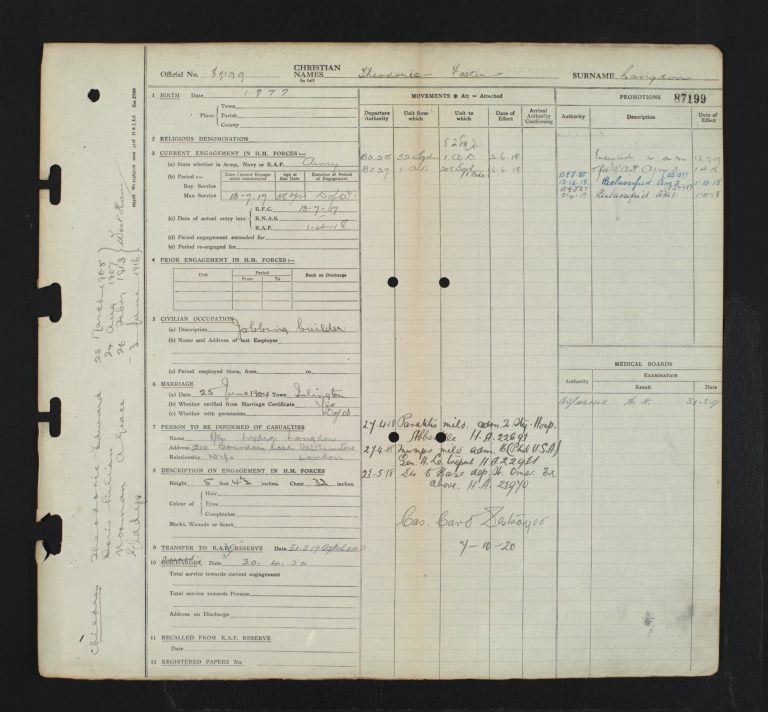 Official No. 87199 CHRISTIAN NAMES (in full) Theodoric Foster SURNAME Langdon
1 BIRTH Date 1877
Place Town
Parish
County
2 RELIGIOUS DENOMINATION
3 CURRENT ENGAGEMENT IN H.M. FORCES :—
(a) State whether in Army, Navy or R.A.F. Army
(b) Period :— Date Current Engagement commenced Age at this Date Duration or Period of Engagement
Boy Service
Man Service 13-7-17 DofW.
R.F.C. 13-7-17
(c) Date of actual entry into R.N.A.S.
R.A.F. 1-4-18
(d) Period engagement extended for
(e) Period re-engaged for
4 PRIOR ENGAGEMENT IN H.M. FORCES :—
Unit Period From To Rank on Discharge
5 CIVILIAN OCCUPATION
(a) Description Jobbing builder
(b) Name and Address of last Employer
(c) Period employed there, from to
6 MARRIAGE
(a) Date 25 June 1904 Town Islington
(b) Whether verified from Marriage Certificate Yes
(c) Whether with permission DofW
7 PERSON TO BE INFORMED OF CASUALTIES
Name Mrs Langdon
Address 210 Boundary
Relationship Wife London
8 DESCRIPTION ON ENGAGEMENT IN H.M. FORCES
Height 5 feet 4½ inches Chest 32 inches
Colour of Hair
Eyes
Complexion
Marks, Wounds or Scars
9 TRANSFER TO R.A.F. RESERVE Date 31-3-19
10 DISCHARGED Date 30.4.20
Total service towards current engagement
Total service towards Pension
Address on Discharge
11 RECALLED FROM R.A.F. RESERVE
12 REGISTERED PAPERS No.
MOVEMENTS * Att — Attached
Departure Authority Unit from which Unit to which Date of Effect Arrival Authority Confirming
52 Sqd
BO.25 52 Sqdn 1. A.D. 2.6.18
BO.27 1. A.D. 6.6.18
27.4.18 mild. adm. 2 Sty. Hosp.
Abbeville H.A. 22691
27.4.18 Mumps mild adm. (Phil U.S.A)
Gen. H. Le Treport H.A. 22921
23-5-18 Dis to Base dep. St Omer. Ex
above. H.A. 23970
Cas. Card Destroyed
7-10-20
PROMOTIONS 87199
Authority Description Date of Effect
13-7-17
1-4-18
13-12-18 Reclassified Am 2 1-10-18
Reclassified Am 1
MEDICAL BOARDS
Authority EXAMINATION Result Date
31-3-19
Children Theodoric Edward 28 March 1905
Lilian 24 Aug 1907
Norman A George 26 Feby 1913
Gladys 2 June 1916
West Ham